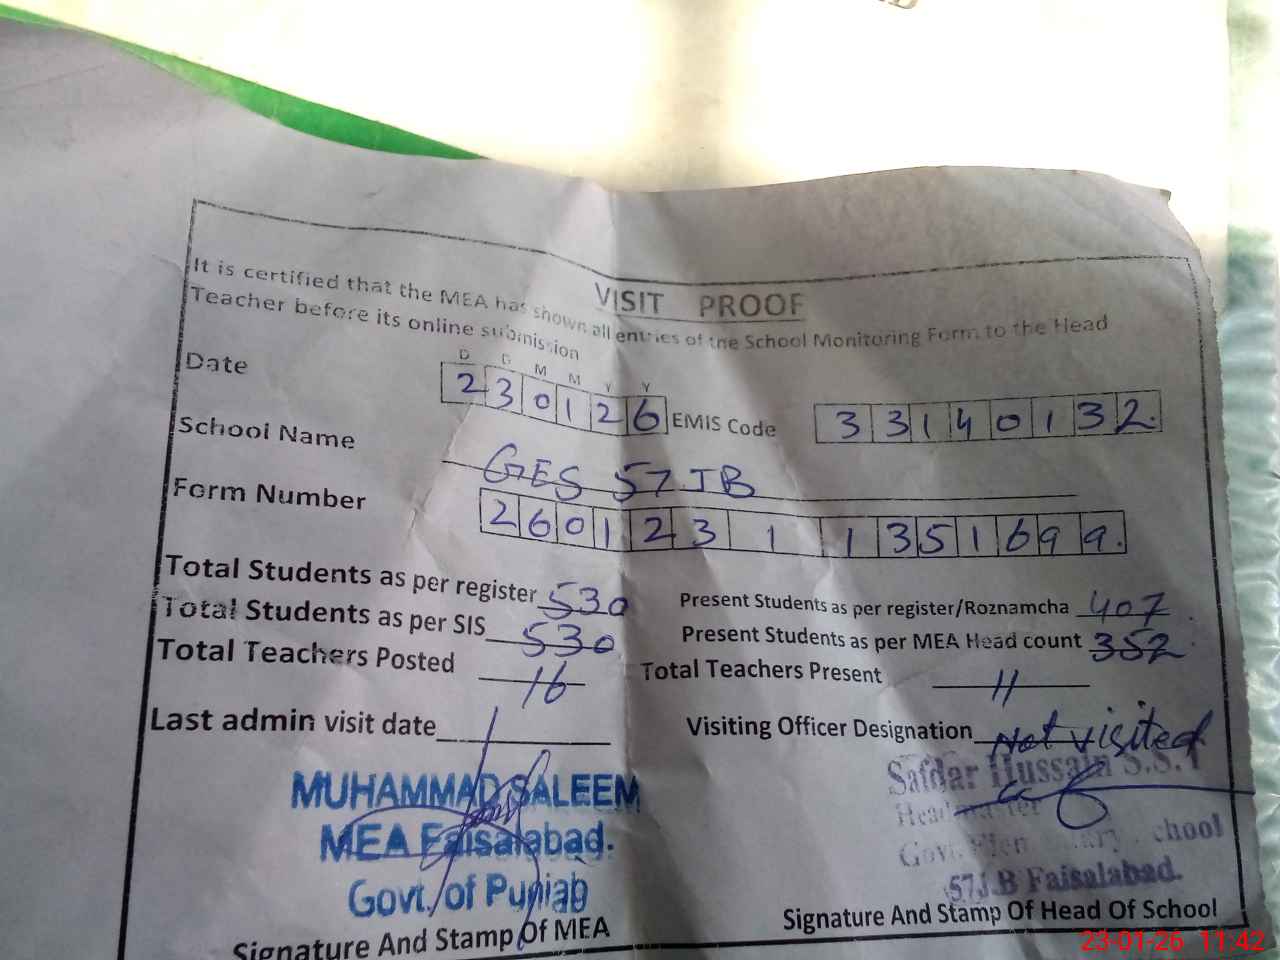 VISIT PROOF
It is certified that the MEA has shown all entries of the School Monitoring Form to the Head
Teacher before its online submission
D D M M Y Y
Date 230126 EMIS Code 33140132.
School Name GES 57 JB
Form Number 26012311351699.
Total Students as per register 530 Present Students as per register/Roznamcha 407
Total Students as per SIS 530 Present Students as per MEA Head count 352
Total Teachers Posted 16 Total Teachers Present 11
Last admin visit date Visiting Officer Designation Not visited
MUHAMMAD SALEEM Safdar Hussain S.S.T
MEA Faisalabad. Headmaster
Govt. of Punjab Govt. Elementary School
57J.B Faisalabad.
Signature And Stamp Of MEA Signature And Stamp Of Head Of School
23-01-26 11:42